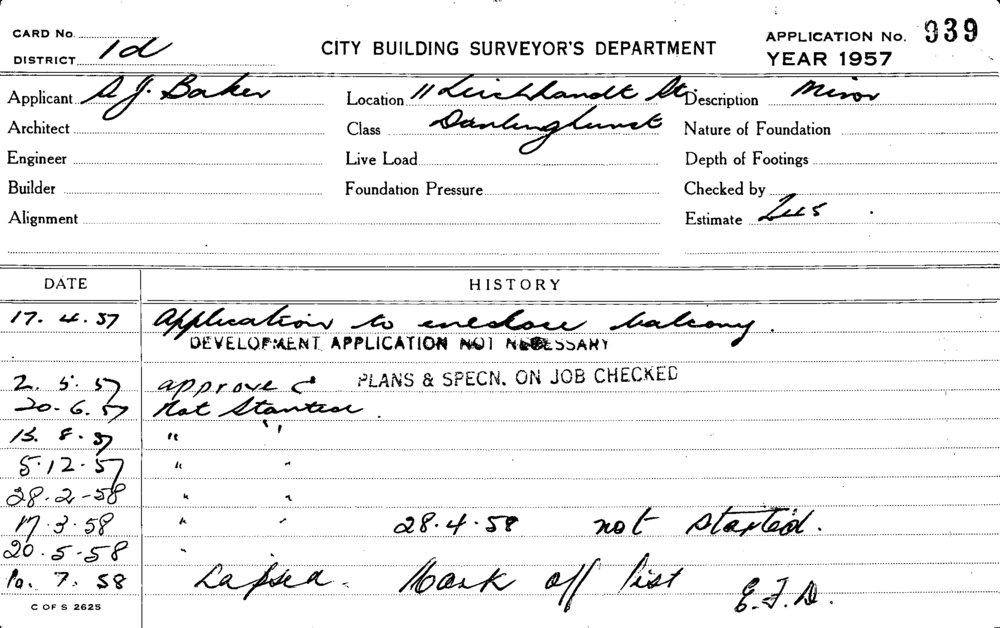 CARD No.
DISTRICT 1d
CITY BUILDING SURVEYOR'S DEPARTMENT
APPLICATION No. 939
YEAR 1957
Applicant A J. Baker Location 11 Leichhardt St, Description Minor
Architect Class Darlinghurst Nature of Foundation
Engineer Live Load Depth of Footings
Builder Foundation Pressure Checked by
Alignment Estimate
DATE HISTORY
17. 4. 57 Application to enclose balcony.
DEVELOPMENT APPLICATION NOT NECESSARY
2. 5. 57 approved PLANS & SPECN. ON JOB CHECKED
20. 6. 57 Not Started.
8. 57 " "
5. 12. 57 " "
28. 2 - 58 " "
17. 3. 58 " " 28. 4. 58 not started.
20. 5. 58 "
10. 7. 58 Lapsed. Mark off list E.J.D.
C OF S 2625